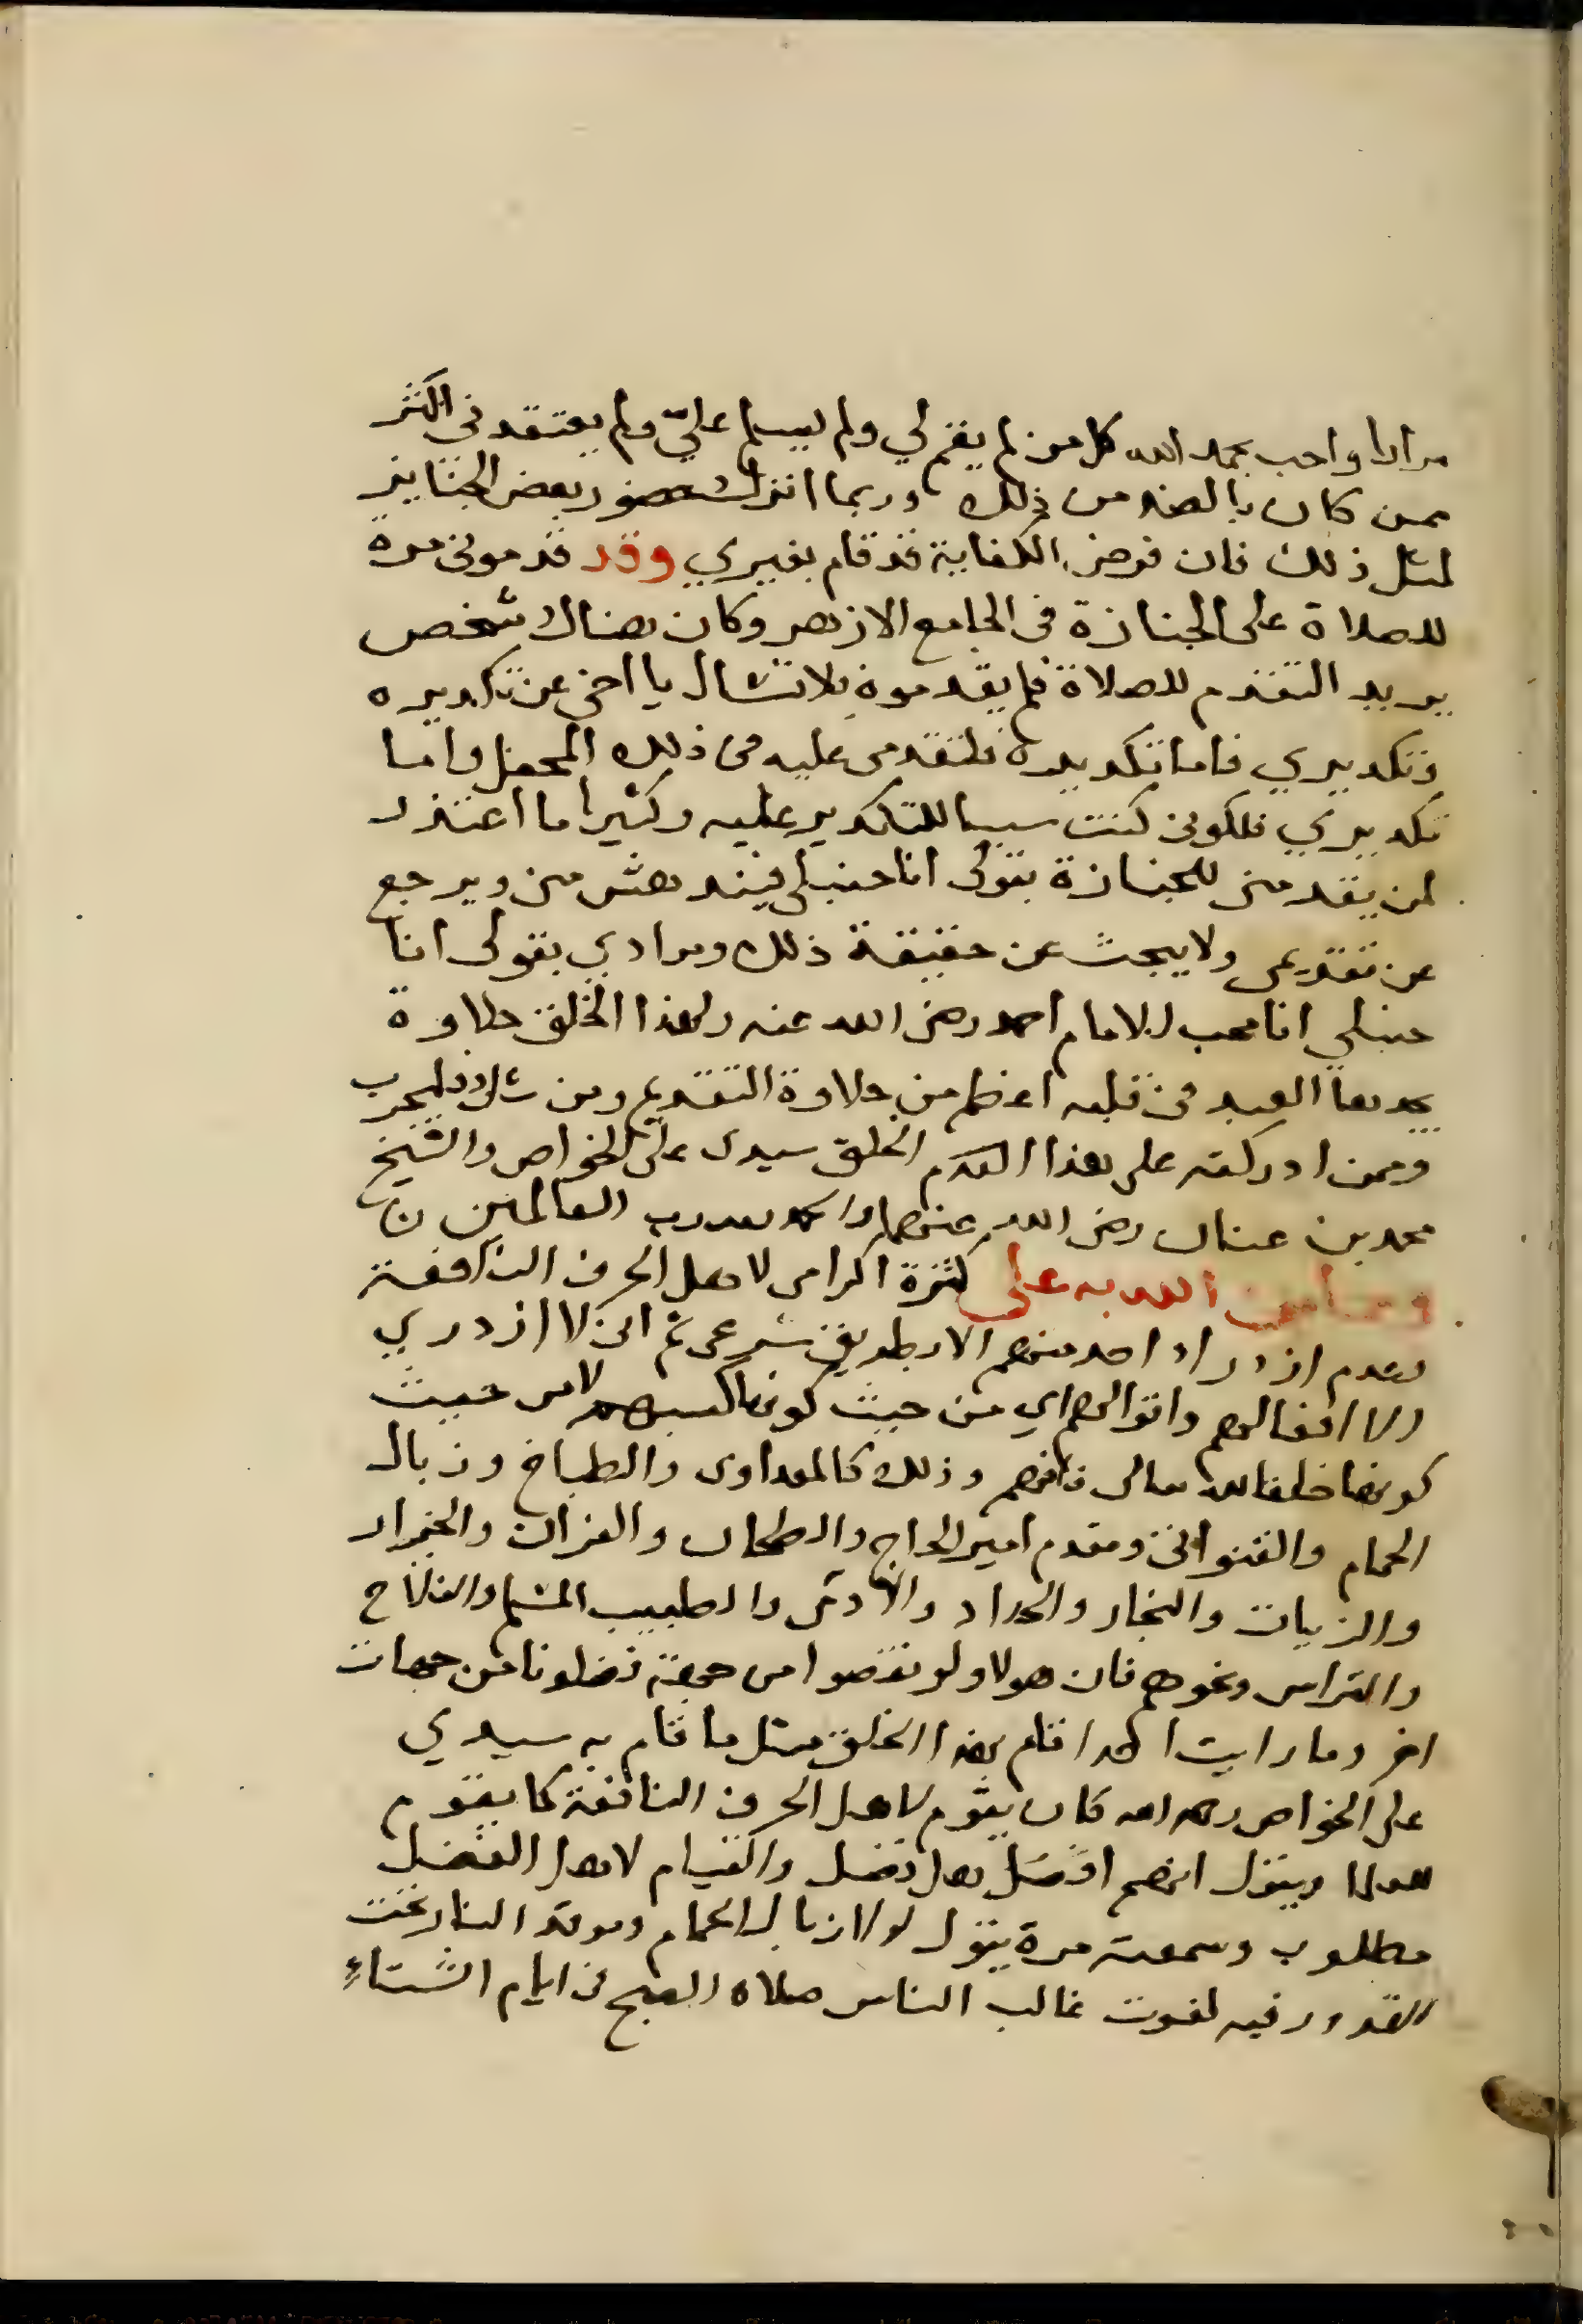 مرارا واحب بحمد الله كل من لم يقم لي ولم يسلم عليّ ولم يعتقد فيّ اكثر
ممن كان بالضد من ذلك وربما اترك حضور بعض الجنايز
لمثل ذلك فان فرض الكفاية قد قام بغيري وقد قدموني مرة
للصلاة على الجنازة في الجامع الازهر وكان هناك شخص
يريد التقدم للصلاة فلم يقدموه فلا تسال يا اخي عن تكديره
وتكديري فاما تكديره فلتقدمي عليه في ذلك المحفل واما
تكديري فلكوني كنت سببا للتكدير عليه وكثيرا ما اعتذر
لمن يقدمني للجنازة بقولي انا حنبلي فيندهش مني ويرجع
عن تقديمي ولا يبحث عن حقيقة ذلك ومرادي بقولي انا
حنبلي انا محب للامام احمد رضي الله عنه ولهذا الخلق حلاوة
يجدها العبد في قلبه اعظم من حلاوة التقديم ومن شك فليجرب
وممن ادركته على هذا القدم الخلق سيدي على الخواص والشيخ
محمد بن عنان رضي الله عنهما والحمد لله رب العالمين
ومما من الله به علي كثرة اكرامي لاهل الحرف النافعة
وعدم ازدراء احد منهم الا بطريق شرعي ثم اني لا ازدري
الا افعالهم واقوالهم اي من حيث كونها كسبهم لا من حيث
كونها خلقا لله تعالى فافهم وذلك كالمعداوي والطباخ وزبال
الحمام والقنواتي ومقدم امير الحاج والطحان والفران والجزار
والزيات والنجار والحداد والطبيب المسلم والفلاح
والتراس ونحوهم فان هولاء ولو نقصوا من جهة فضلونا من جهات
اخر وما رايت احدا قام بهذا الخلق مثل ما قام به سيدي
على الخواص رحمه الله كان يقوم لاهل الحرف النافعة كما يقوم
للعلما ويقول انهم افضل اهل فضل والقيام لاهل الفضل
مطلوب وسمعته مرة يقول لولا زبال الحمام وموقد النار تحت
القدور فيه لفوت غالب الناس صلاة الصبح في ايام الشتاء